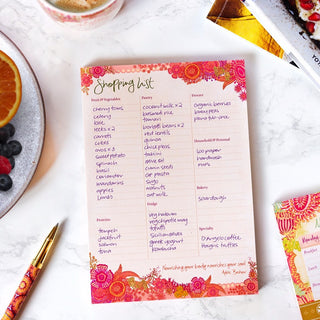 Shopping List
Fruit & Vegetables
cherry toms
celery
kale
leeks x 2
carrots
limes
onions x 3
sweet potato
spinach
basil
coriander
mandarins
apples
Proteins
tempeh
jackfruit
salmon
tuna
Pantry
coconut milk x 2
basmati rice
tamari
borlotti beans x 2
quinoa
chick peas
tahini
olive oil
cumin seeds
GF pasta
sugo
walnuts
oat milk
Fridge
veg halloum
veg chipotle mayo
tofutti
goats yoghurt
kombucha
Freezer
Organic berries
sweet peas
Household & Personal
loo paper
handwash
mints
Bakery
sourdough
Specialty
D'Angelo coffee
Mayers butter
Nourishing your body nourishes your soul